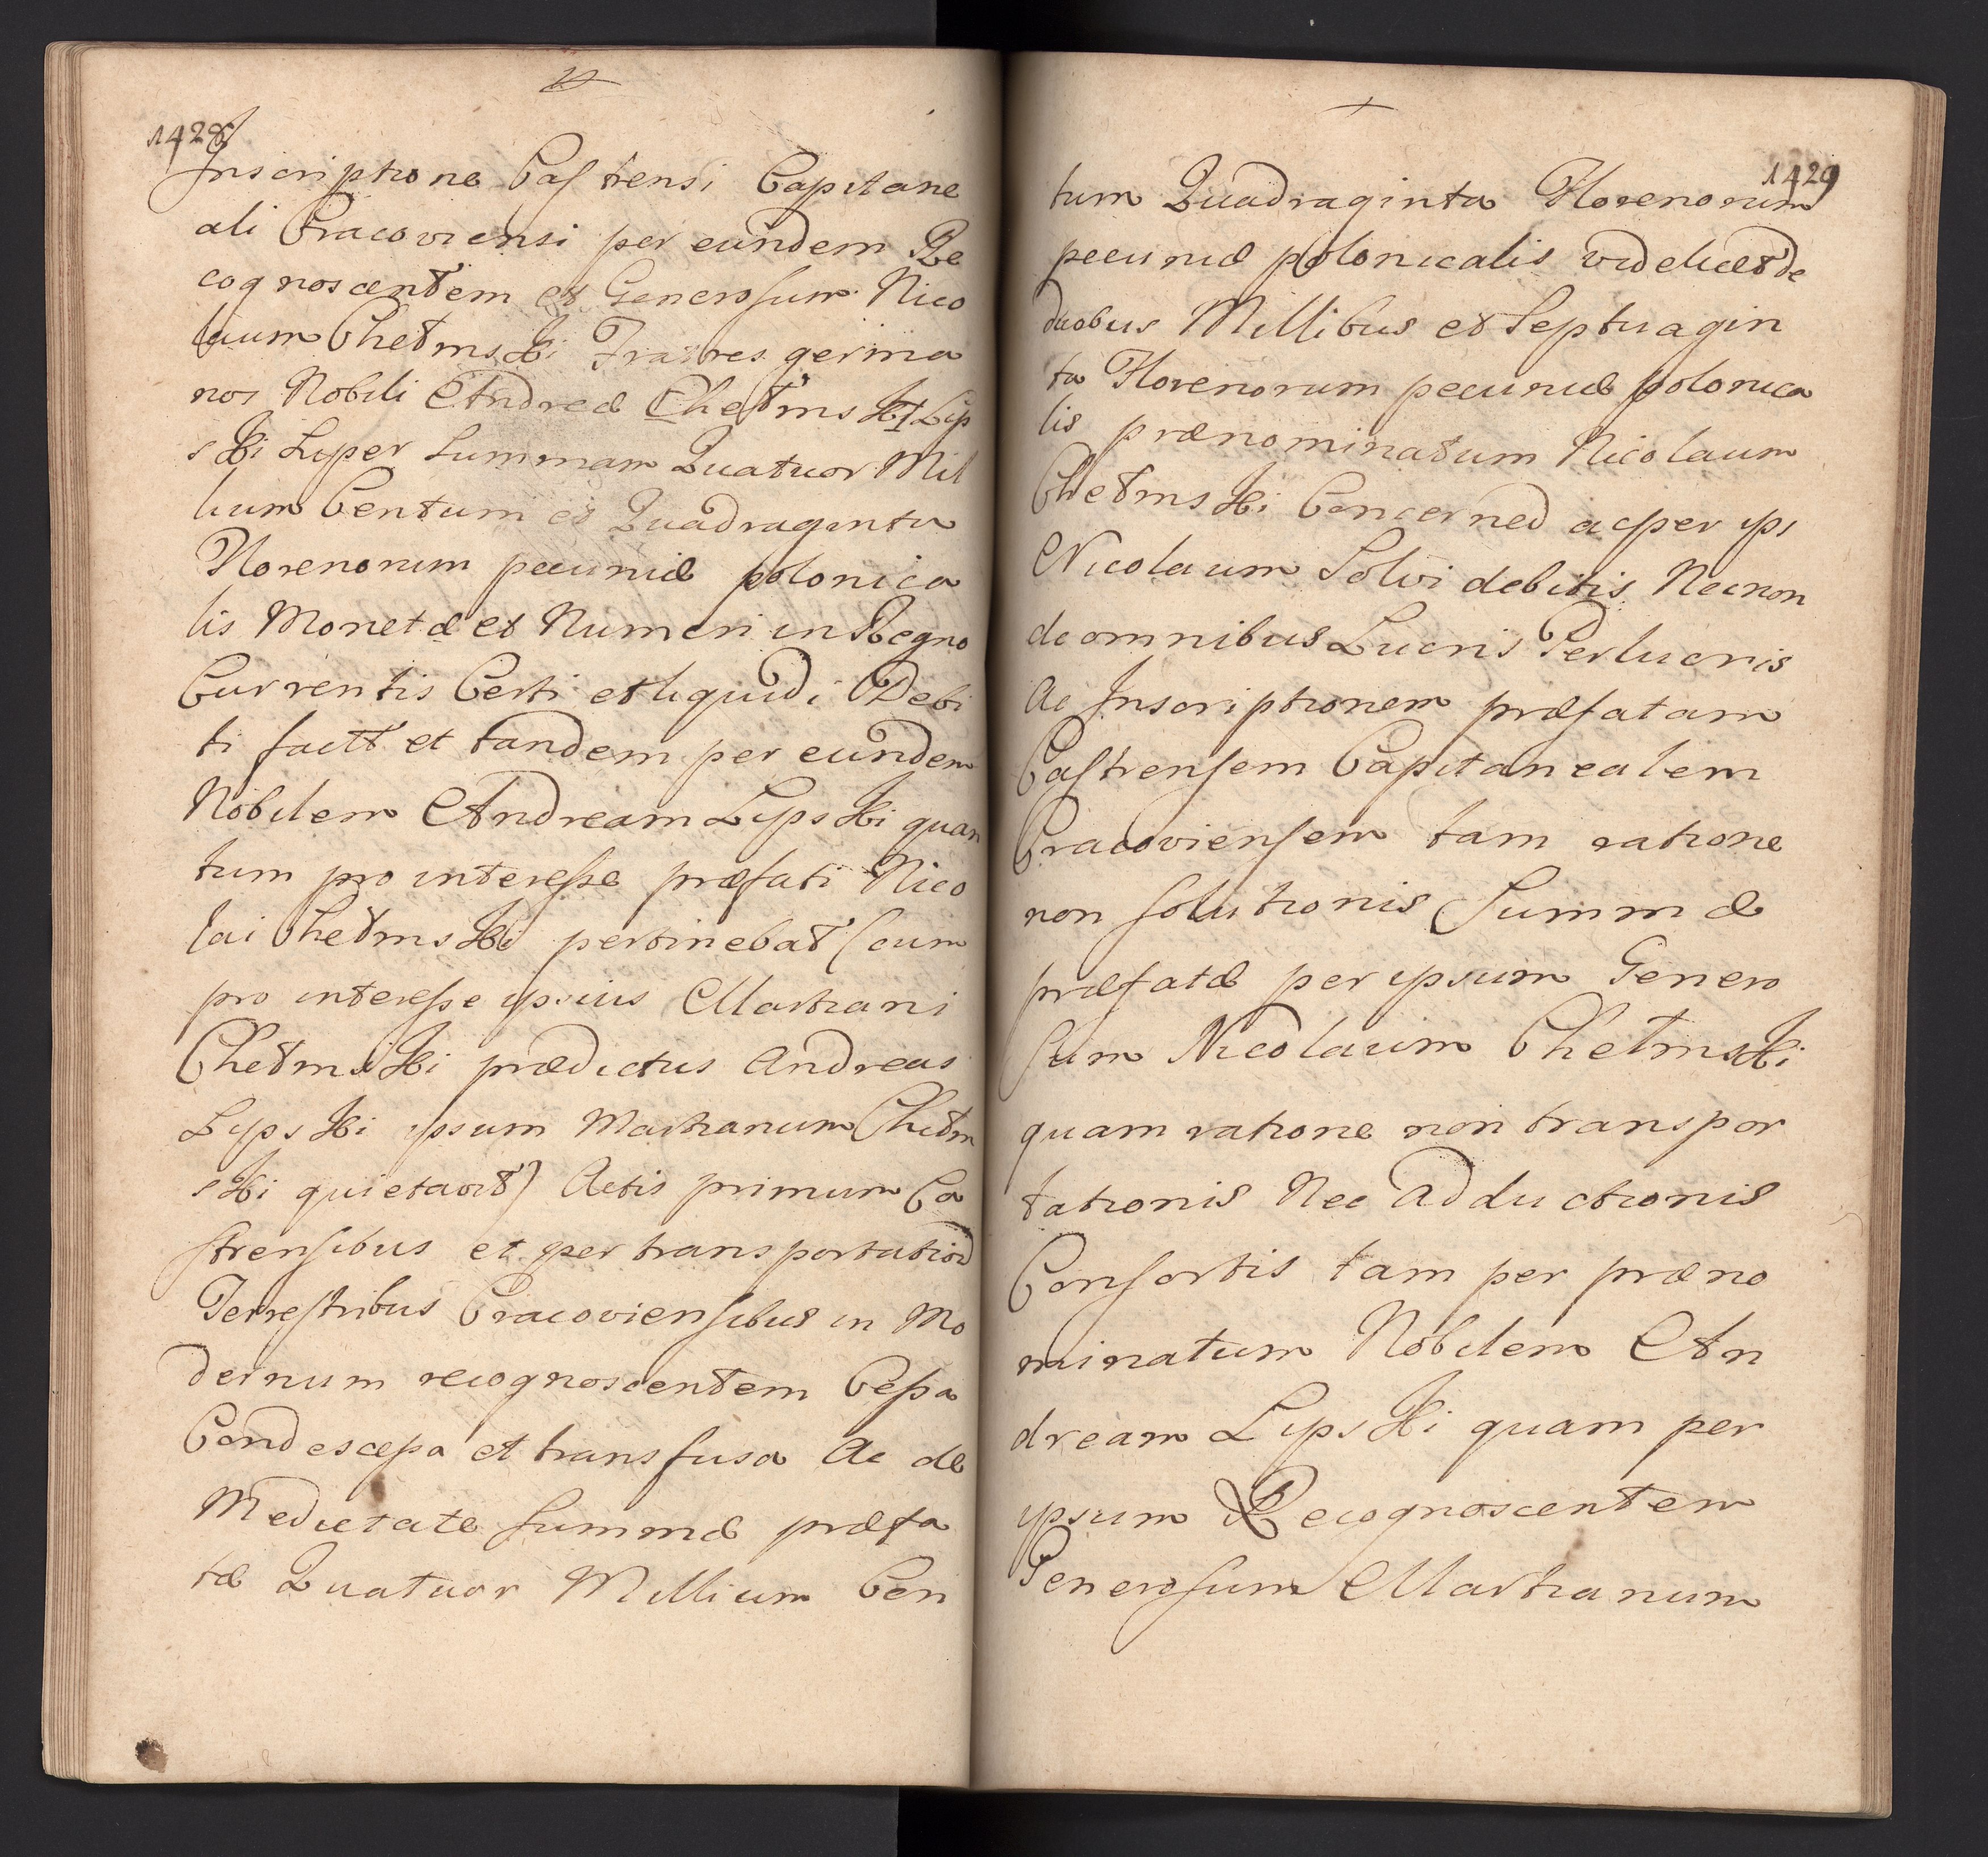 1428
Inscriptione Castrensi Capitane
ali Cracoviensi per eundem Re
cognoscentem et Generosum Nico
laum Chetmski Fratres germa
nos Nobili Andreæ Chetmski Lip
ski super summam Quatuor Mil
lium Centum et Quadraginta
Florenorum pecuniæ polonica
lis Monetæ et Numeri in Regno
Currentis Certi et liquidi Debi
ti factt et tandem per eundem
Nobilem Andream Lipski quan
tum pro interesse præfati Nico
lai Chetmski pertinebat (cum
pro interesse ipsius Martiani
Chetmski prædictus Andreas
Lipski ipsum Martianum Chetm
ski quietavit) Actis primum Ca
strensibus et per transportationem
Terrestribus Cracoviensibus in Mo
dernum recognoscentem Cessa
Condescessa et transfusa Ac de
Medietate summæ præfa
tæ Quatuor Millium Cen
1429
tum Quadraginta Florenorum
pecuniæ polonicalis videlicet de
duobus Millibus et Septuagin
ta Florenorum pecuniæ polonica
lis prænominatum Nicolaum
Chetmski Concerned ac per ips
Nicolaum Solvi debitis Necnon
de omnibus Lucris Perlucris
Ac Inscriptionem præfatam
Castrensem Capitanealem
Cracoviensem tam ratione
non solutionis Summæ
præfatæ per ipsum Genero
sum Nicolaum Chetmski
quam ratione non transpor
tationis Nec adductionis
Consortis tam per præno
minatum Nobilem An
dream Lipski quam per
ipsum Recognoscentem
Generosum Martianum